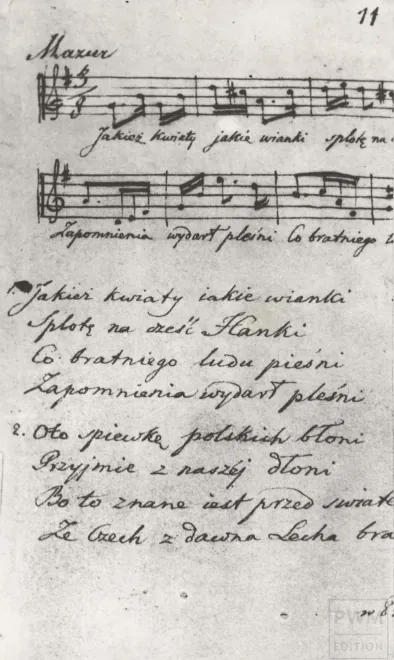 11
Mazur
Jakież kwiaty jakie wianki splotę na
Zapomnienia wydarł pleśni Co bratniego
1. Jakież kwiaty iakie wianki
Splotę na cześć Hanki
Co bratniego ludu pieśni
Zapomnienia wydarł pleśni
2. Oto śpiewkę polskich błoni
Przyjmie z naszej dłoni
Bo to znane iest przed świate
Że Czech z dawna Lecha bra
PWM
EDITION